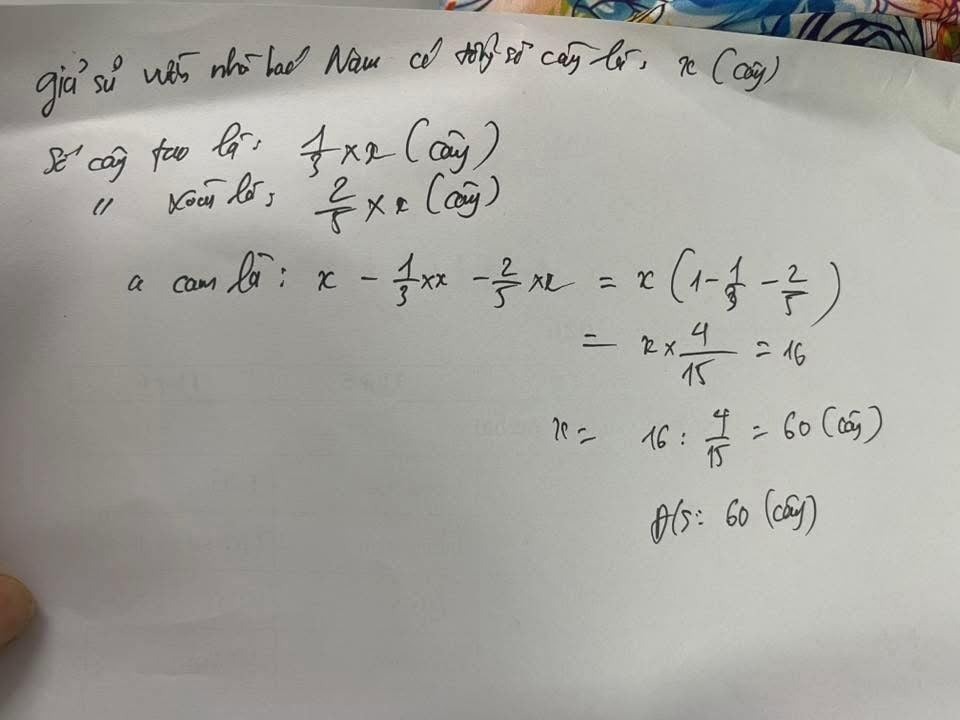 giả sử vườn nhà bác Năm có tổng số cây là: x (cây)
Số cây táo là: 1/3 × x (cây)
" xoài là: 2/5 × x (cây)
" cam là: x - 1/3 × x - 2/5 × x = x (1 - 1/3 - 2/5)
= x × 4/15 = 16
x = 16 : 4/15 = 60 (cây)
Đ/S: 60 (cây)